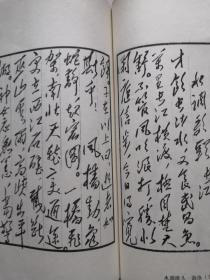 水调歌头 长江
才饮长沙水又食武昌鱼
万里长江横渡极目楚天
舒不管风吹浪打胜似
闲庭信步今日得宽
馀子在川上曰逝者如
斯夫 风樯动龟
蛇静起宏图一桥飞
架南北天堑变通途
更立西江石壁截断
巫山云雨高峡出平
湖神女
水调歌头·游泳